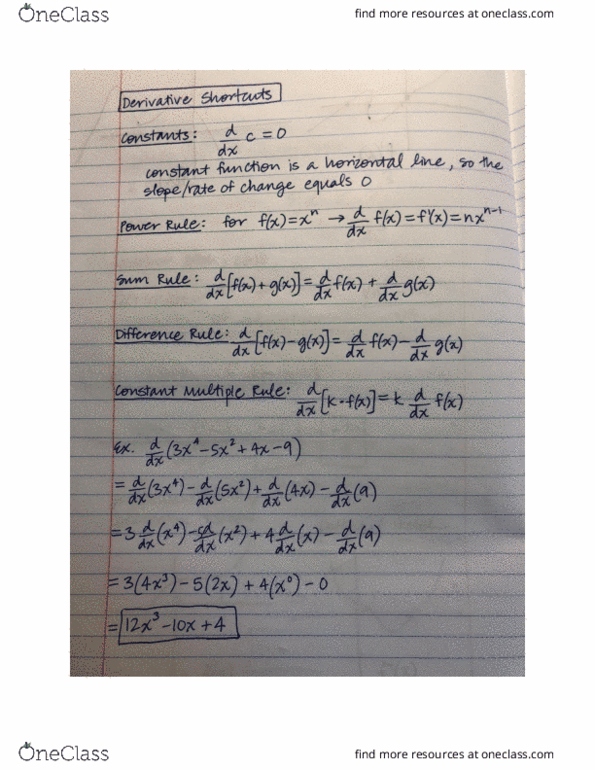 OneClass
find more resources at oneclass.com
Derivative Shortcuts
Constants: d/dx c = 0
constant function is a horizontal line, so the
slope/rate of change equals 0
Power Rule: for f(x) = xⁿ → d/dx f(x) = f'(x) = nxⁿ⁻¹
Sum Rule: d/dx [f(x) + g(x)] = d/dx f(x) + d/dx g(x)
Difference Rule: d/dx [f(x) - g(x)] = d/dx f(x) - d/dx g(x)
Constant Multiple Rule: d/dx [k · f(x)] = k d/dx f(x)
Ex. d/dx (3x⁴ - 5x² + 4x - 9)
= d/dx (3x⁴) - d/dx (5x²) + d/dx (4x) - d/dx (9)
= 3 d/dx (x⁴) - 5 d/dx (x²) + 4 d/dx (x) - d/dx (9)
= 3(4x³) - 5(2x) + 4(x⁰) - 0
= 12x³ - 10x + 4
OneClass
find more resources at oneclass.com